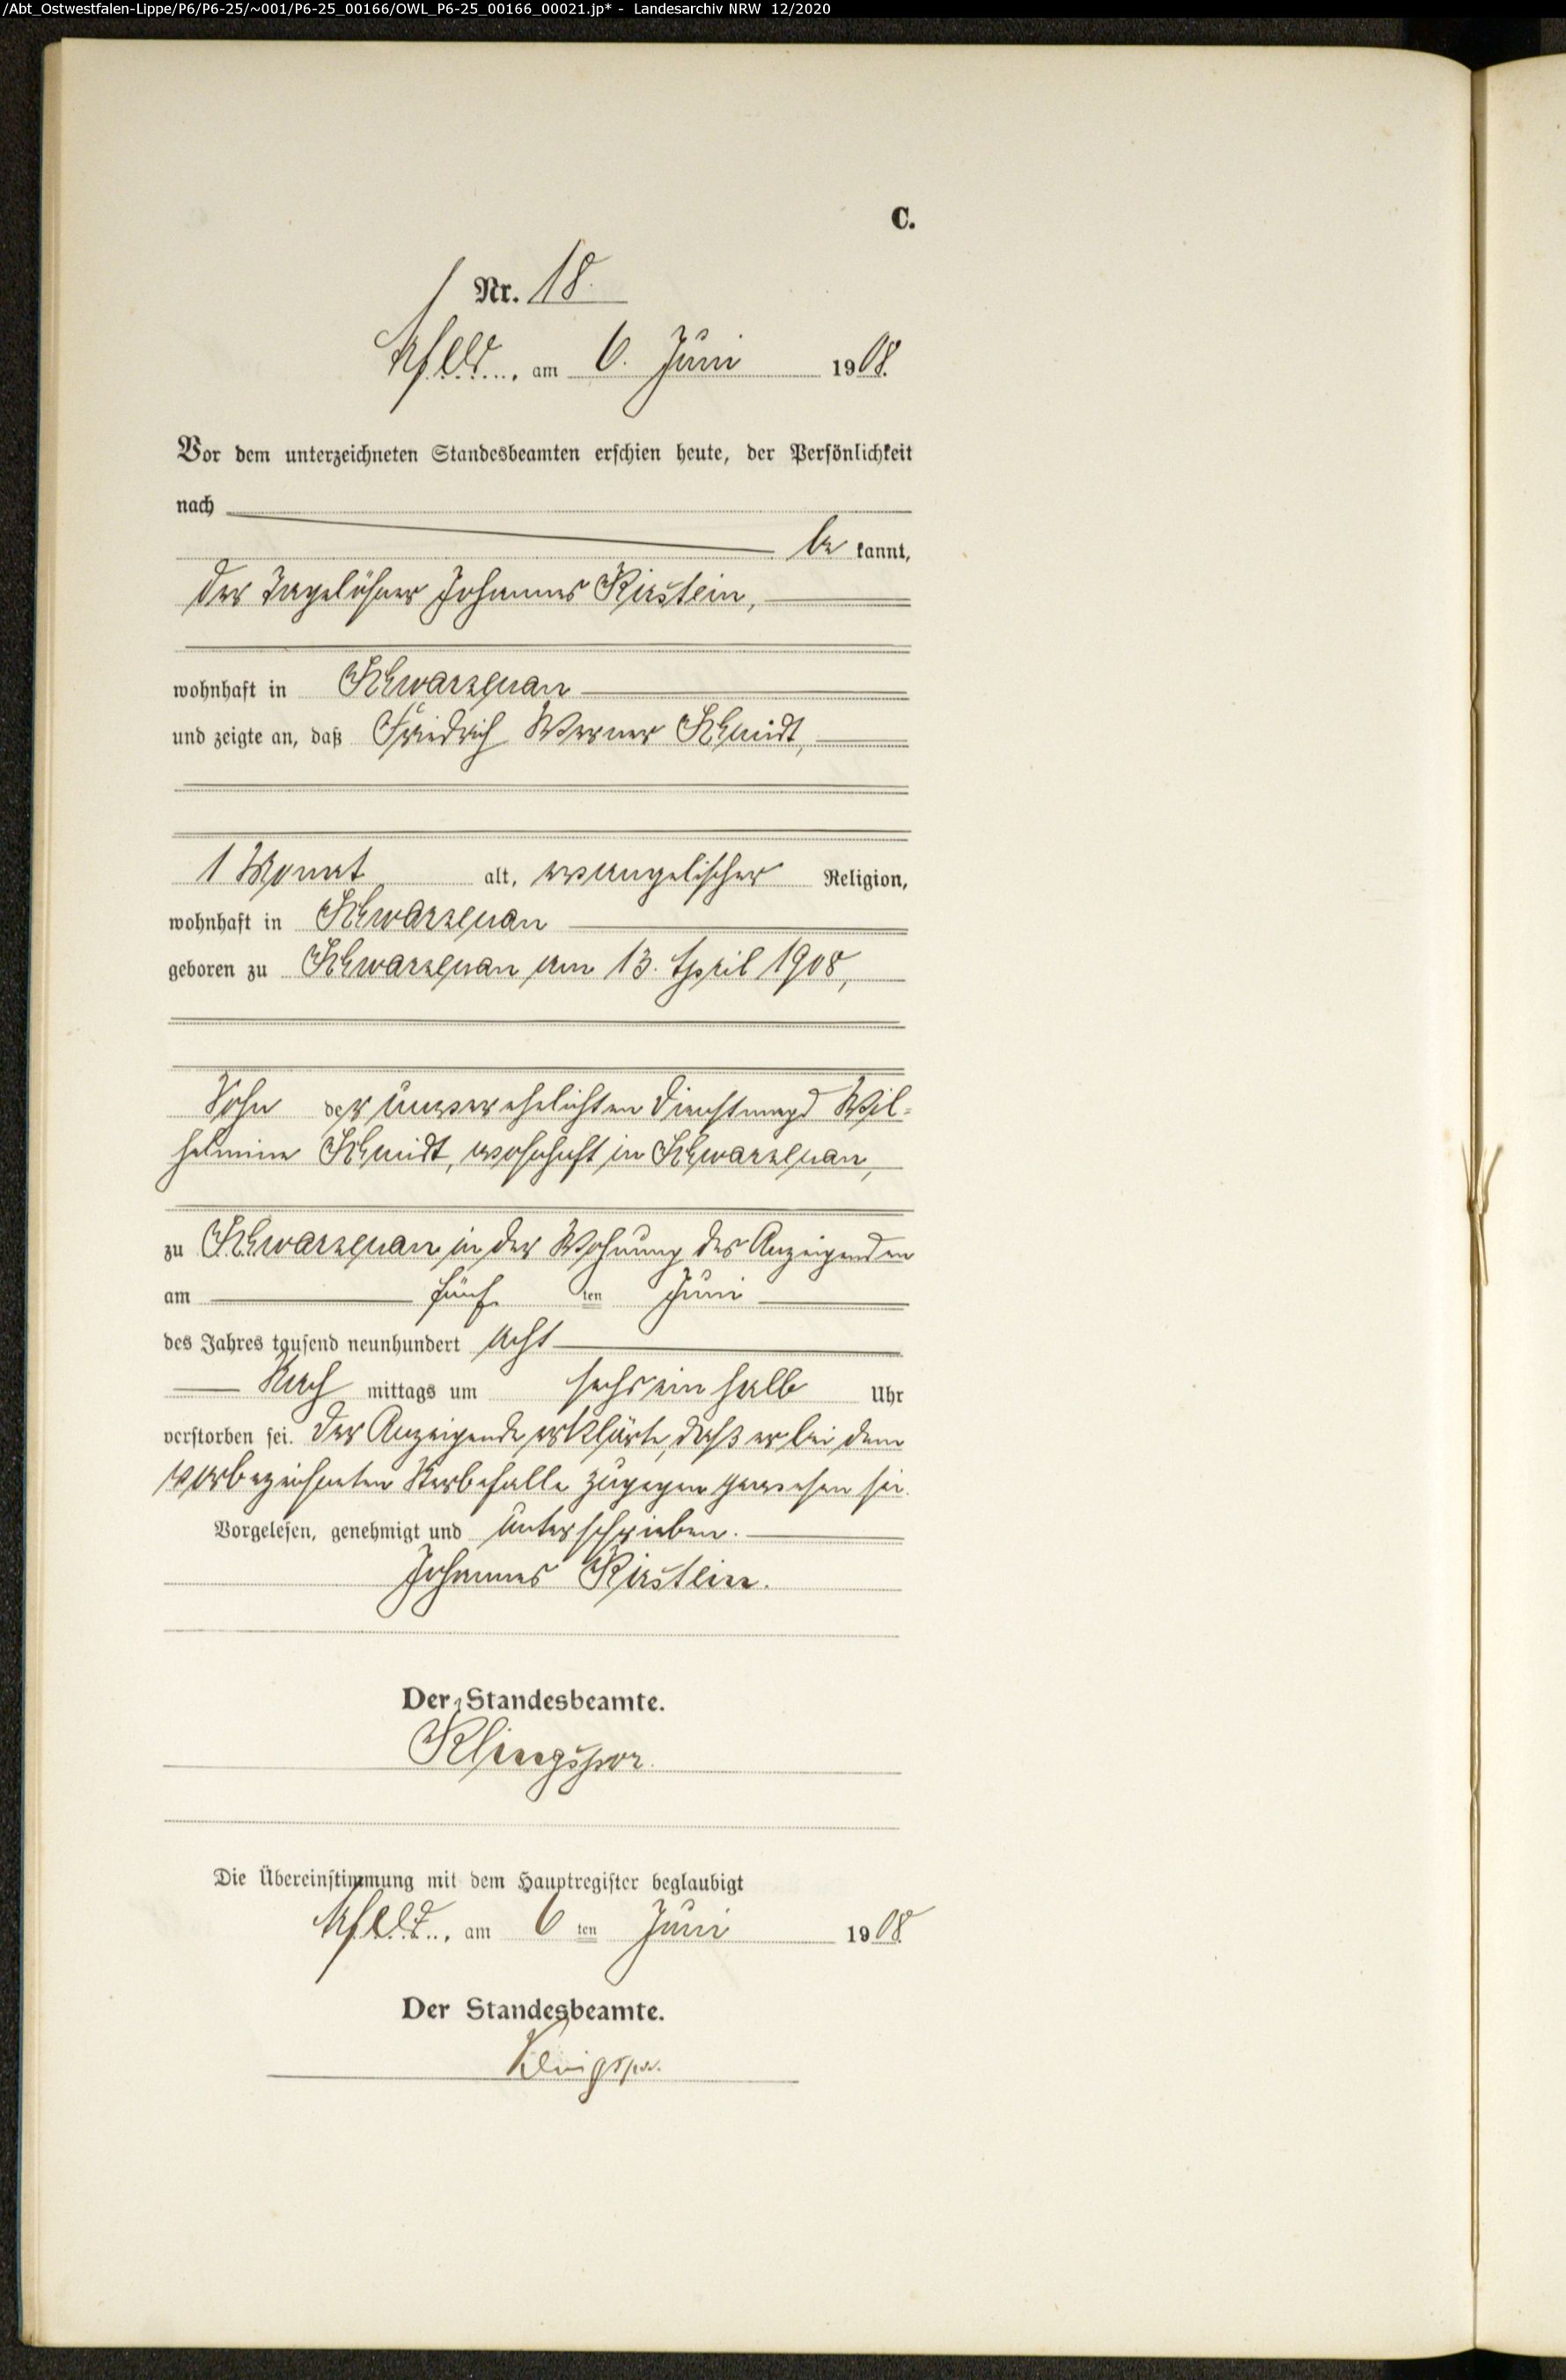 /Abt_Ostwestfalen-Lippe/P6/P6-25/~001/P6-25_00166/OWL_P6-25_00166_00021.jp* - Landesarchiv NRW 12/2020
C.
Nr. 18.
Arfeld, am 6. Juni 1908.
Vor dem unterzeichneten Standesbeamten erschien heute, der Persönlichkeit
nach
be kannt,
der Tagelöhner Johannes Kirstein,
wohnhaft in Schwarzenau
und zeigte an, daß Friedrich Werner Schmidt,
1 Monat alt, evangelischer Religion,
wohnhaft in Schwarzenau
geboren zu Schwarzenau am 13. April 1908,
Sohn der unverehelichten Dienstmagd Wil-
helmine Schmidt, wohnhaft in Schwarzenau,
zu Schwarzenau in der Wohnung des Anzeigenden
am fünf ten Juni
des Jahres tausend neunhundert acht
Nach mittags um sechs ein halb Uhr
verstorben sei. Der Anzeigende erklärte, daß er bei dem
vorbezeichneten Sterbefalle zugegen gewesen sei.
Vorgelesen, genehmigt und unterschrieben.
Johannes Kirstein.
Der Standesbeamte.
Klingspor.
Die Übereinstimmung mit dem Hauptregister beglaubigt
Arfeld, am 6 ten Juni 1908
Der Standesbeamte.
Klingspor.